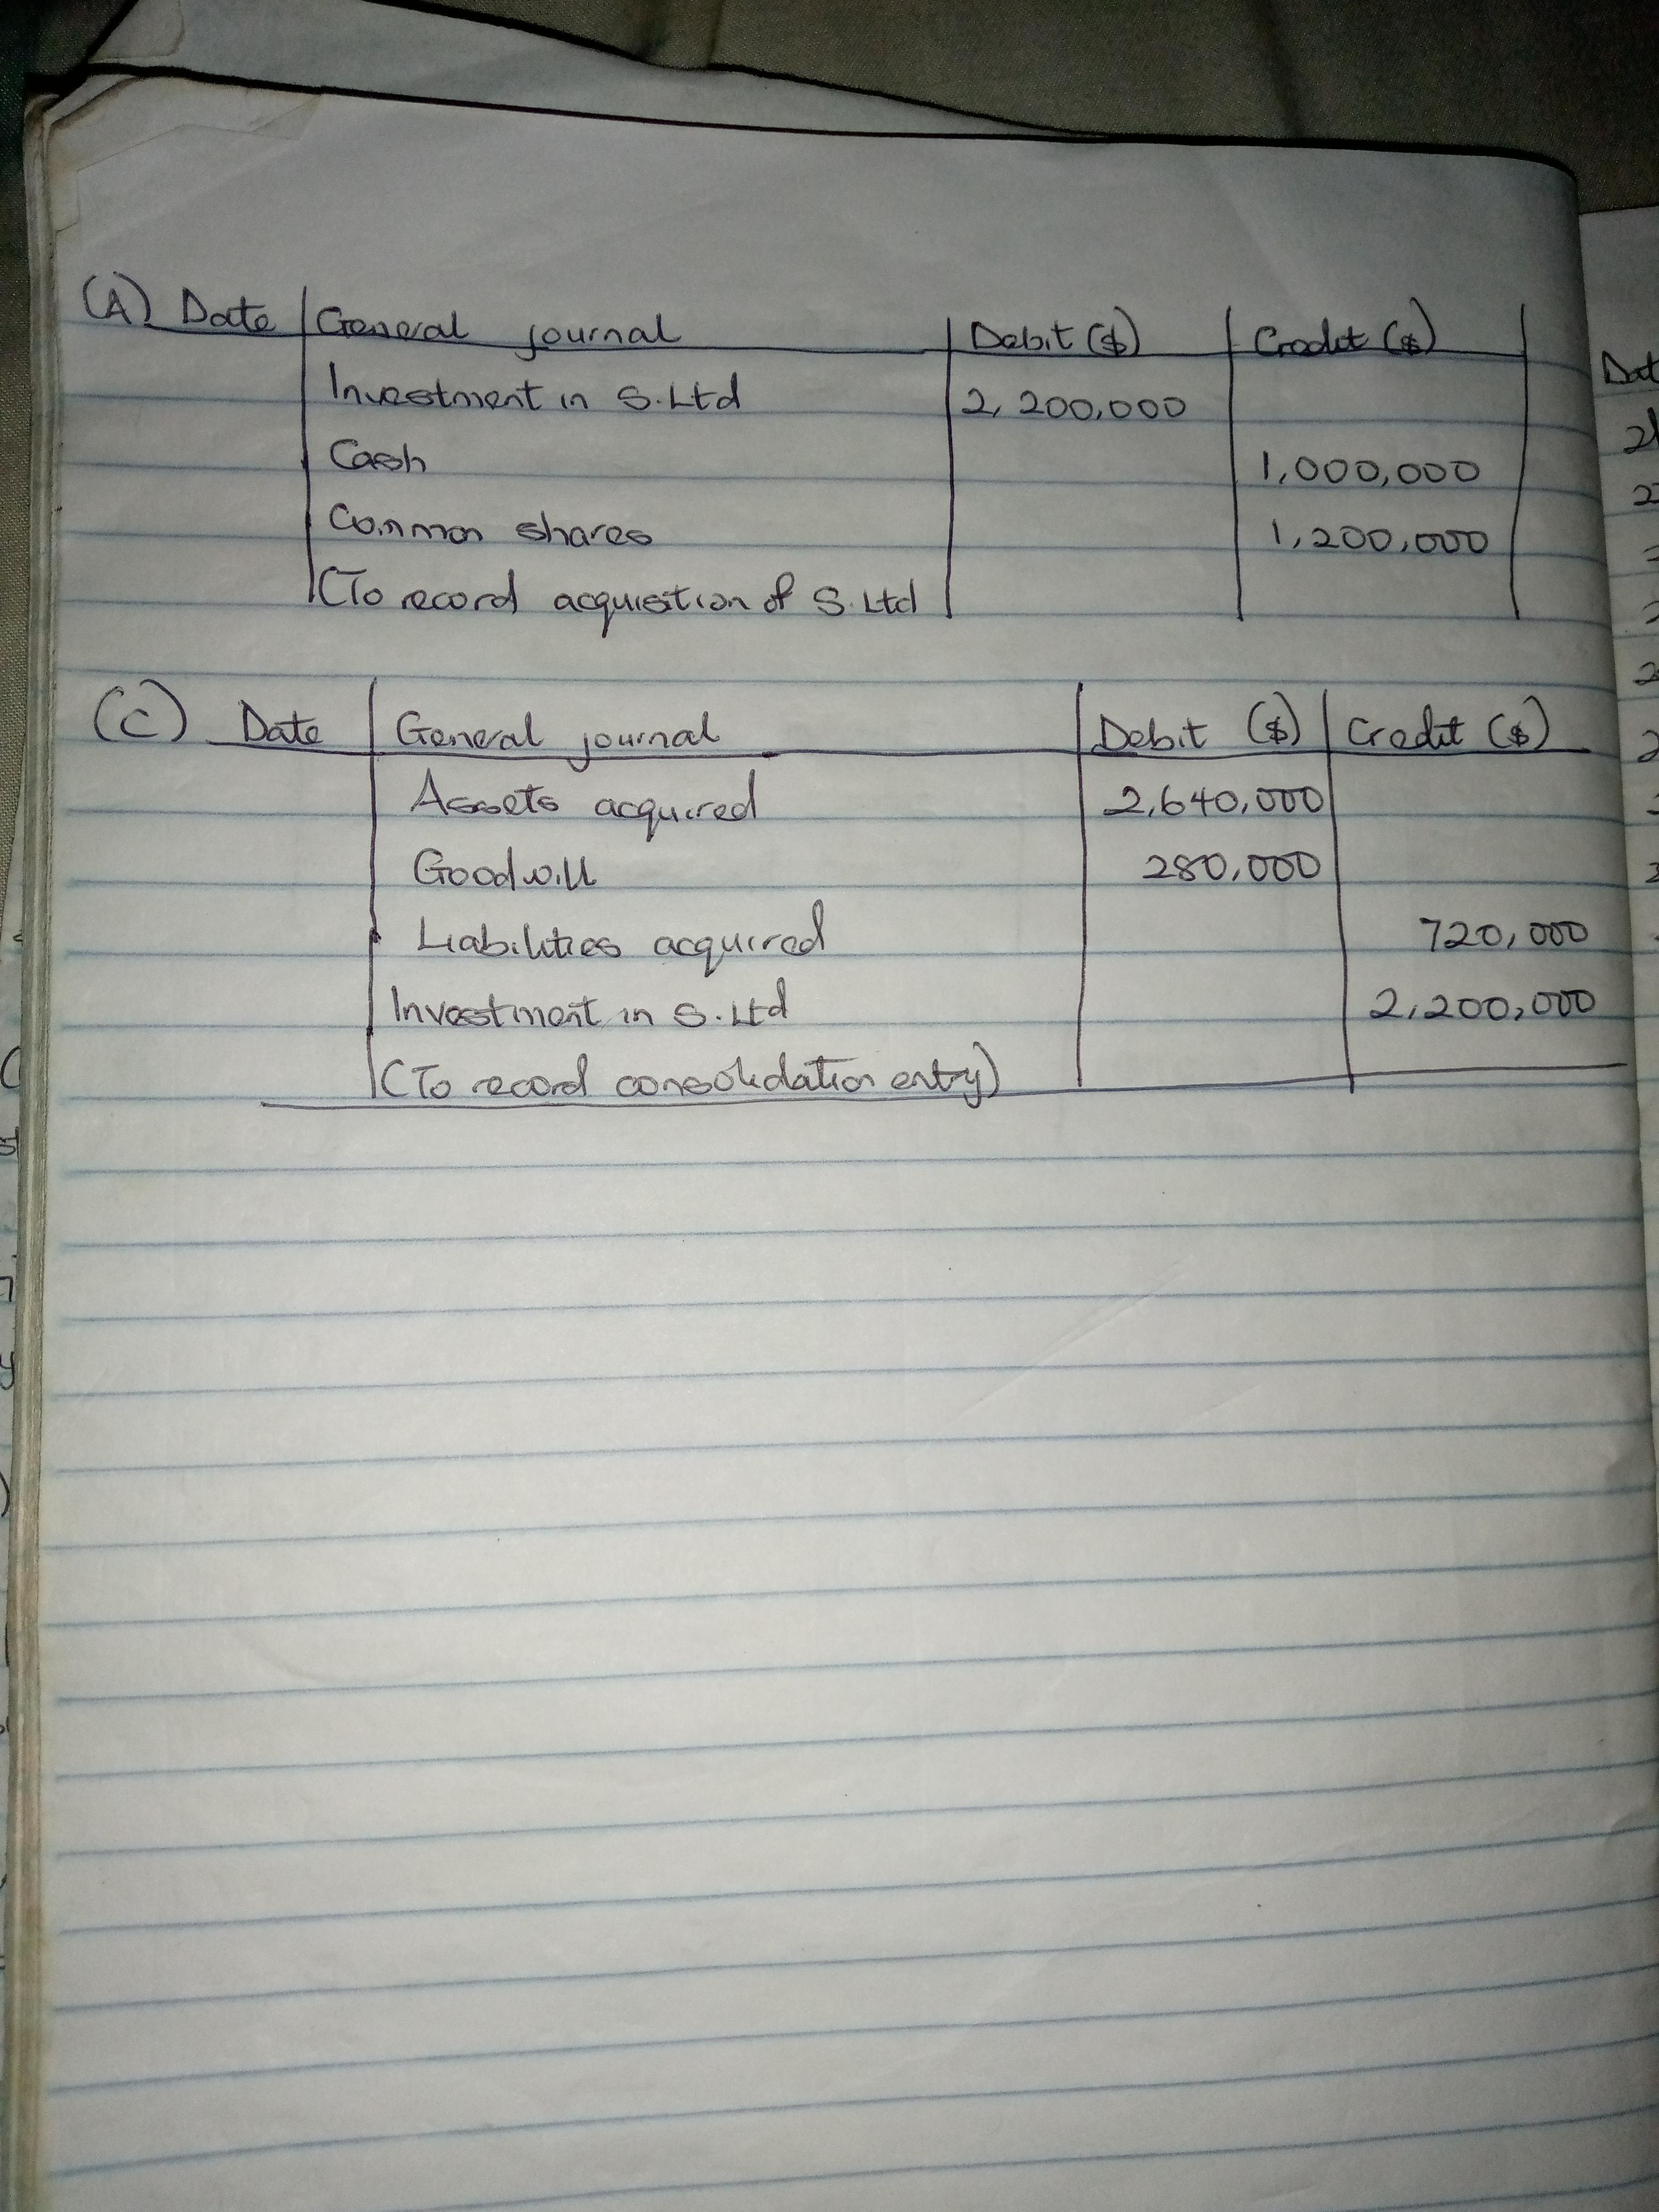 (A) Date General journal Debit ($) Credit ($)
Investment in S.Ltd 2,200,000
Cash 1,000,000
Common shares 1,200,000
(To record acquisition of S.Ltd
(C) Date General journal Debit ($) Credit ($)
Assets acquired 2,640,000
Goodwill 280,000
Liabilities acquired 720,000
Investment in S.Ltd 2,200,000
(To record consolidation entry)